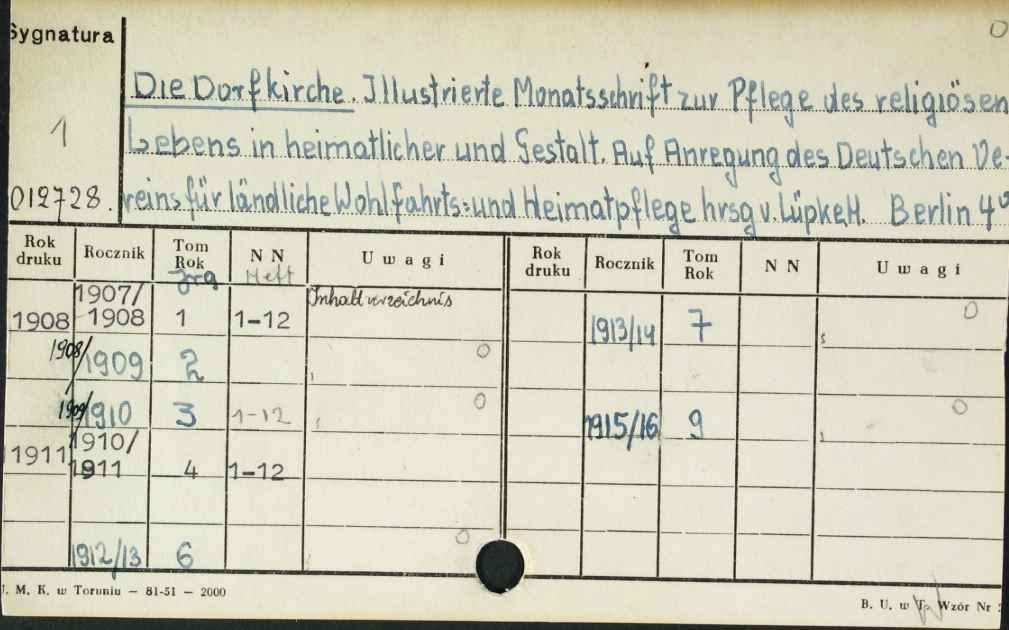 Sygnatura
Die Dorfkirche. Illustrierte Monatsschrift zur Pflege des religiösen
1 Lebens in heimatlicher und Gestalt. Auf Anregung des Deutschen Ve-
012728. reins für ländliche Wohlfahrts- und Heimatpflege hrsg v. Lüpke H. Berlin 4°
Rok druku Rocznik Tom Rok N N U w a g i Rok druku Rocznik Tom Rok N N U w a g i
Jrg Heft
1908 1907/1908 1 1-12 Inhaltverzeichnis 1913/14 7
1908/1909 2
1909/1910 3 1-12 1915/16 9
1911 1910/1911 4 1-12
1912/13 6
. M. K. w Toruniu — 81-51 — 2000
B. U. w T. Wzór Nr